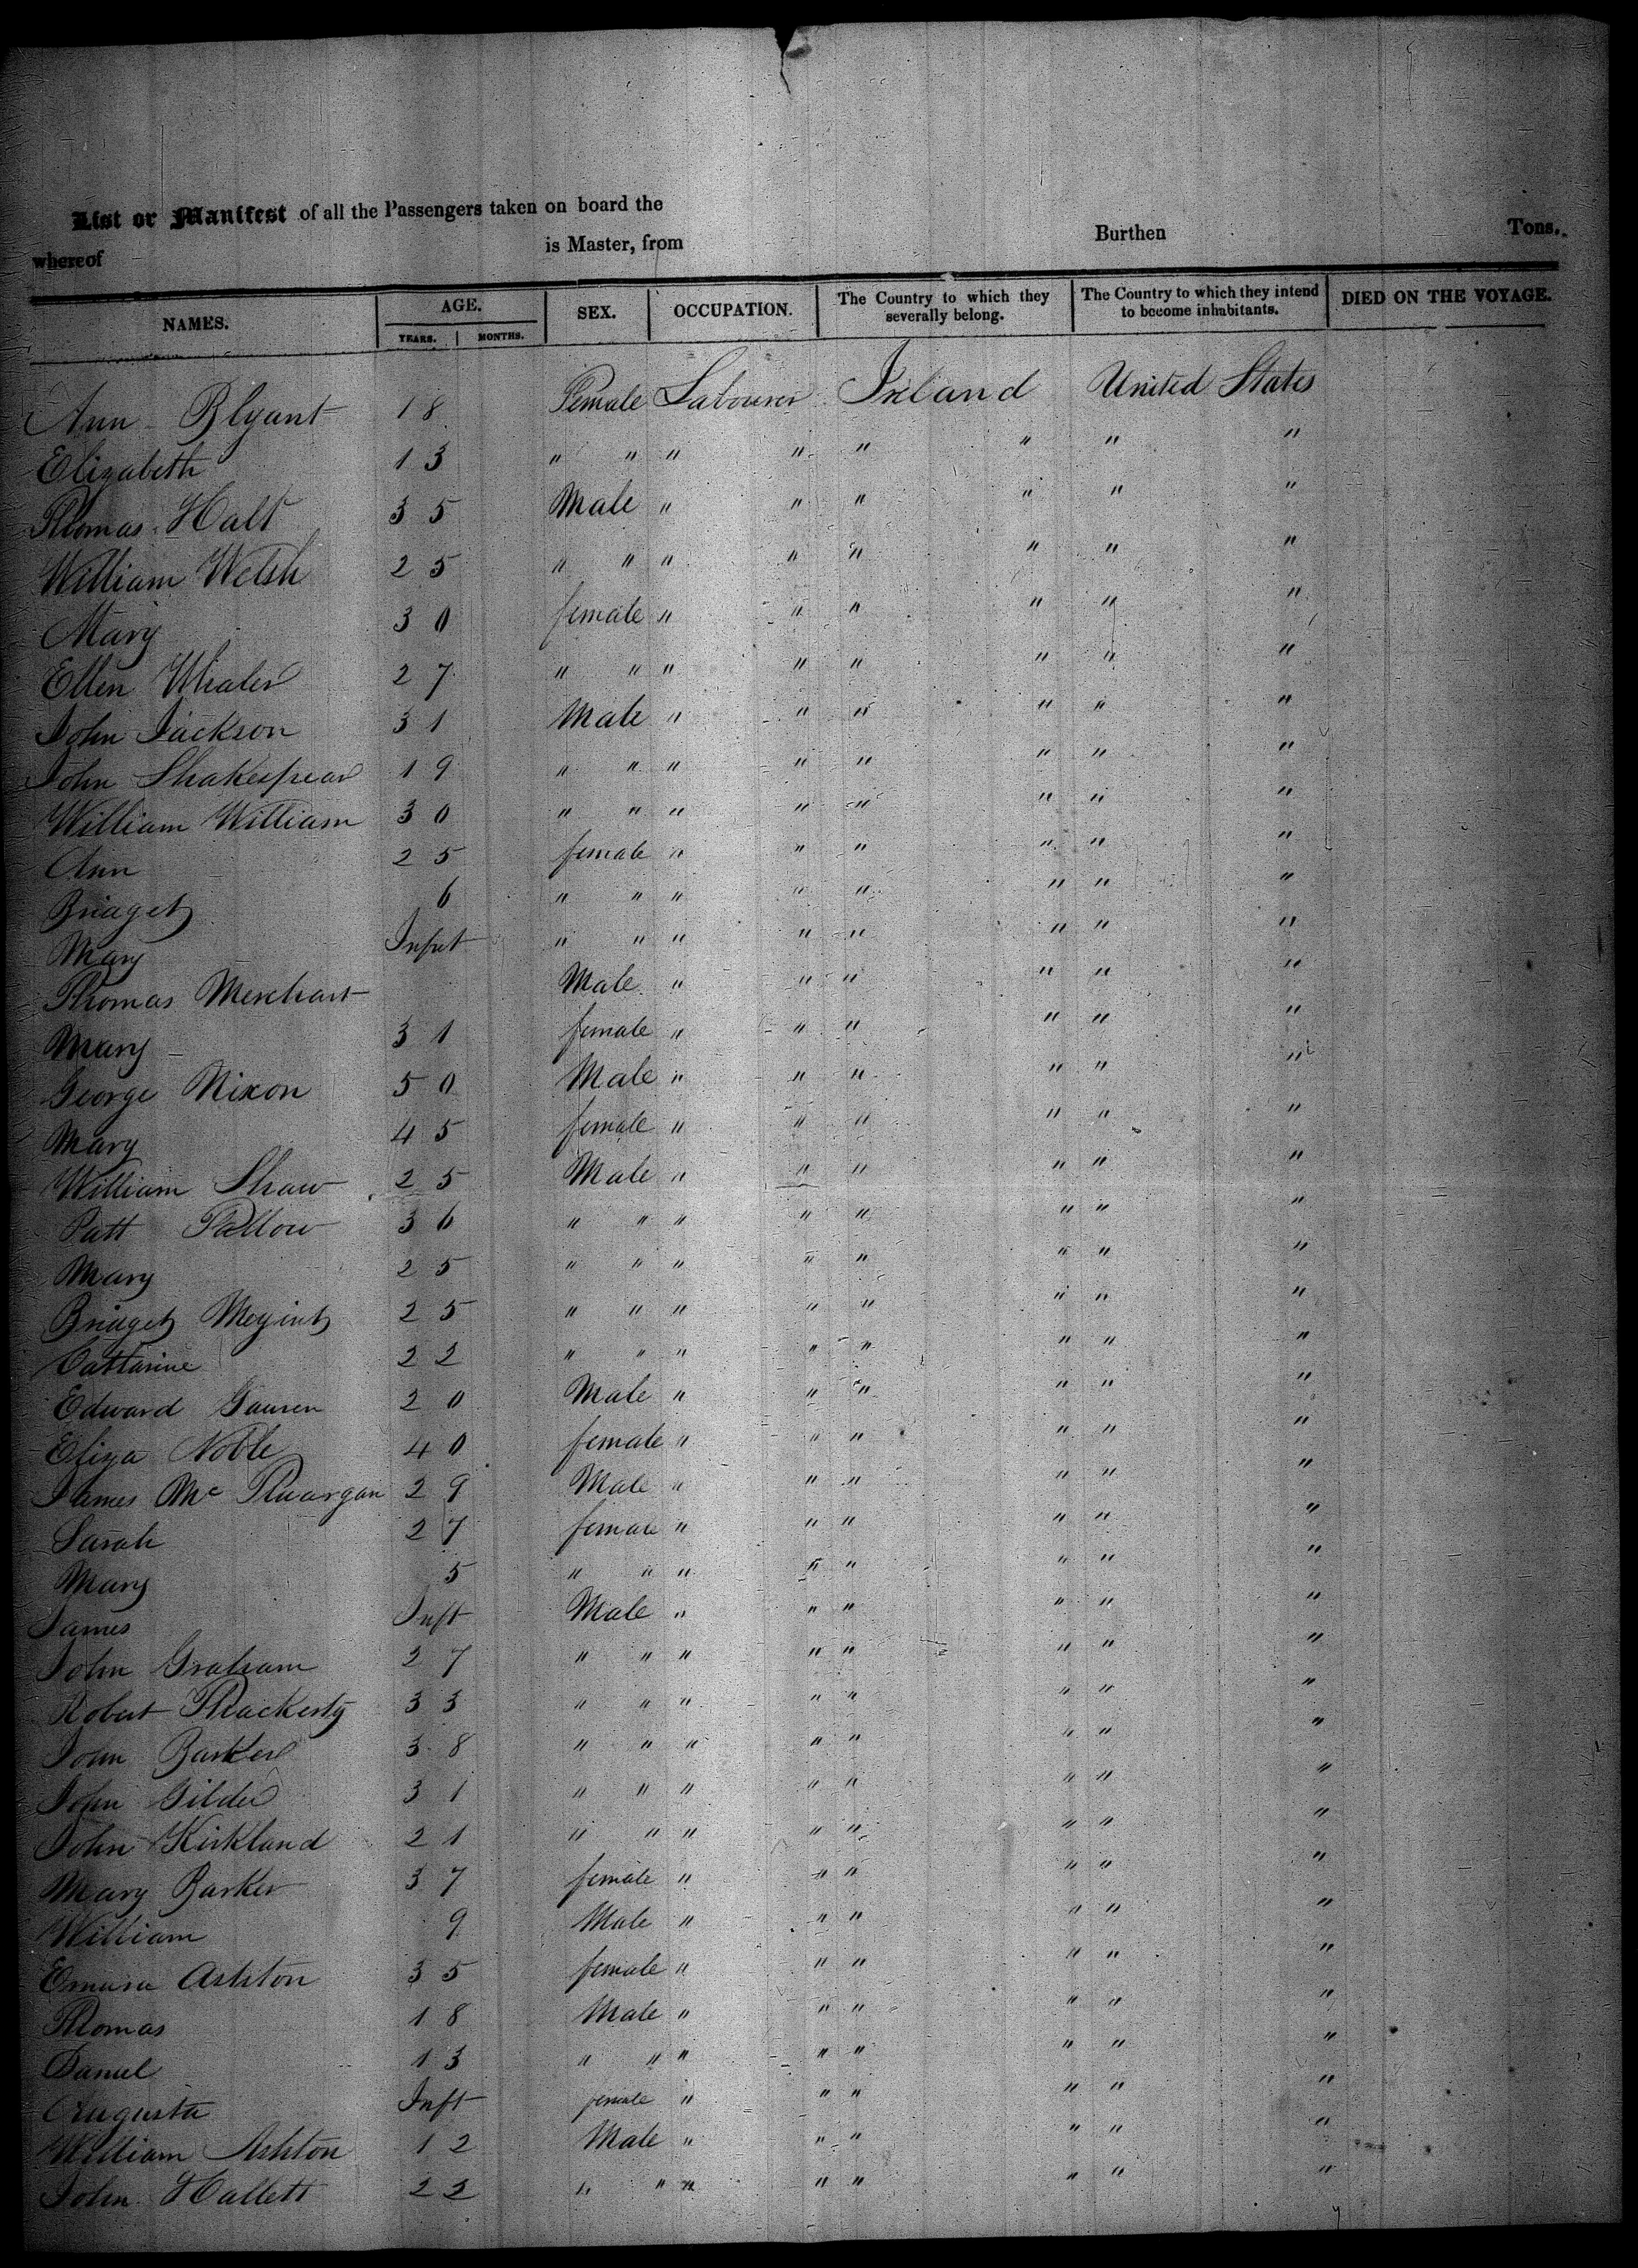 List or Manifest of all the Passengers taken on board the
whereof is Master, from Burthen Tons.
NAMES. AGE. SEX. OCCUPATION. The Country to which they severally belong. The Country to which they intend to become inhabitants. DIED ON THE VOYAGE.
YEARS. MONTHS.
Ann Blyant 18 Female Labourer Ireland United States
Elizabeth 13 " " " " " " " "
Thomas Halt 35 Male " " " " " "
William Welsh 25 " " " " " " " "
Mary 30 female " " " " " "
Ellen Whaler 27 " " " " " " " "
John Jackson 31 Male " " " " " "
John Shakespear 19 " " " " " " " "
William William 30 " " " " " " " "
Ann 25 female " " " " " "
Bridget 6 " " " " " " " "
Mary Infnt " " " " " " " "
Thomas Merchant Male " " " " " "
Mary 31 female " " " " " "
George Nixon 50 Male " " " " " "
Mary 45 female " " " " " "
William Shaw 25 Male " " " " " "
Patt Fallow 36 " " " " " " " "
Mary 25 " " " " " " " "
Bridget 25 " " " " " " " "
Cattarine 22 " " " " " " " "
Edward 20 Male " " " " " "
Eliza Noble 40 female " " " " " "
James Mc 29 Male " " " " " "
Sarah 27 female " " " " " "
Mary 5 " " " " " " " "
James Inft Male " " " " " "
John Graham 27 " " " " " " " "
Robert 33 " " " " " " " "
John Barker 38 " " " " " " " "
John Gilder 31 " " " " " " " "
John Kirkland 21 " " " " " " " "
Mary Barker 37 female " " " " " "
William 9 Male " " " " " "
Ashton 35 female " " " " " "
Thomas 18 Male " " " " " "
Daniel 13 " " " " " " " "
Augusta Inft female " " " " " "
William Ashton 12 Male " " " " " "
John Hallett 22 " " " " " " " "